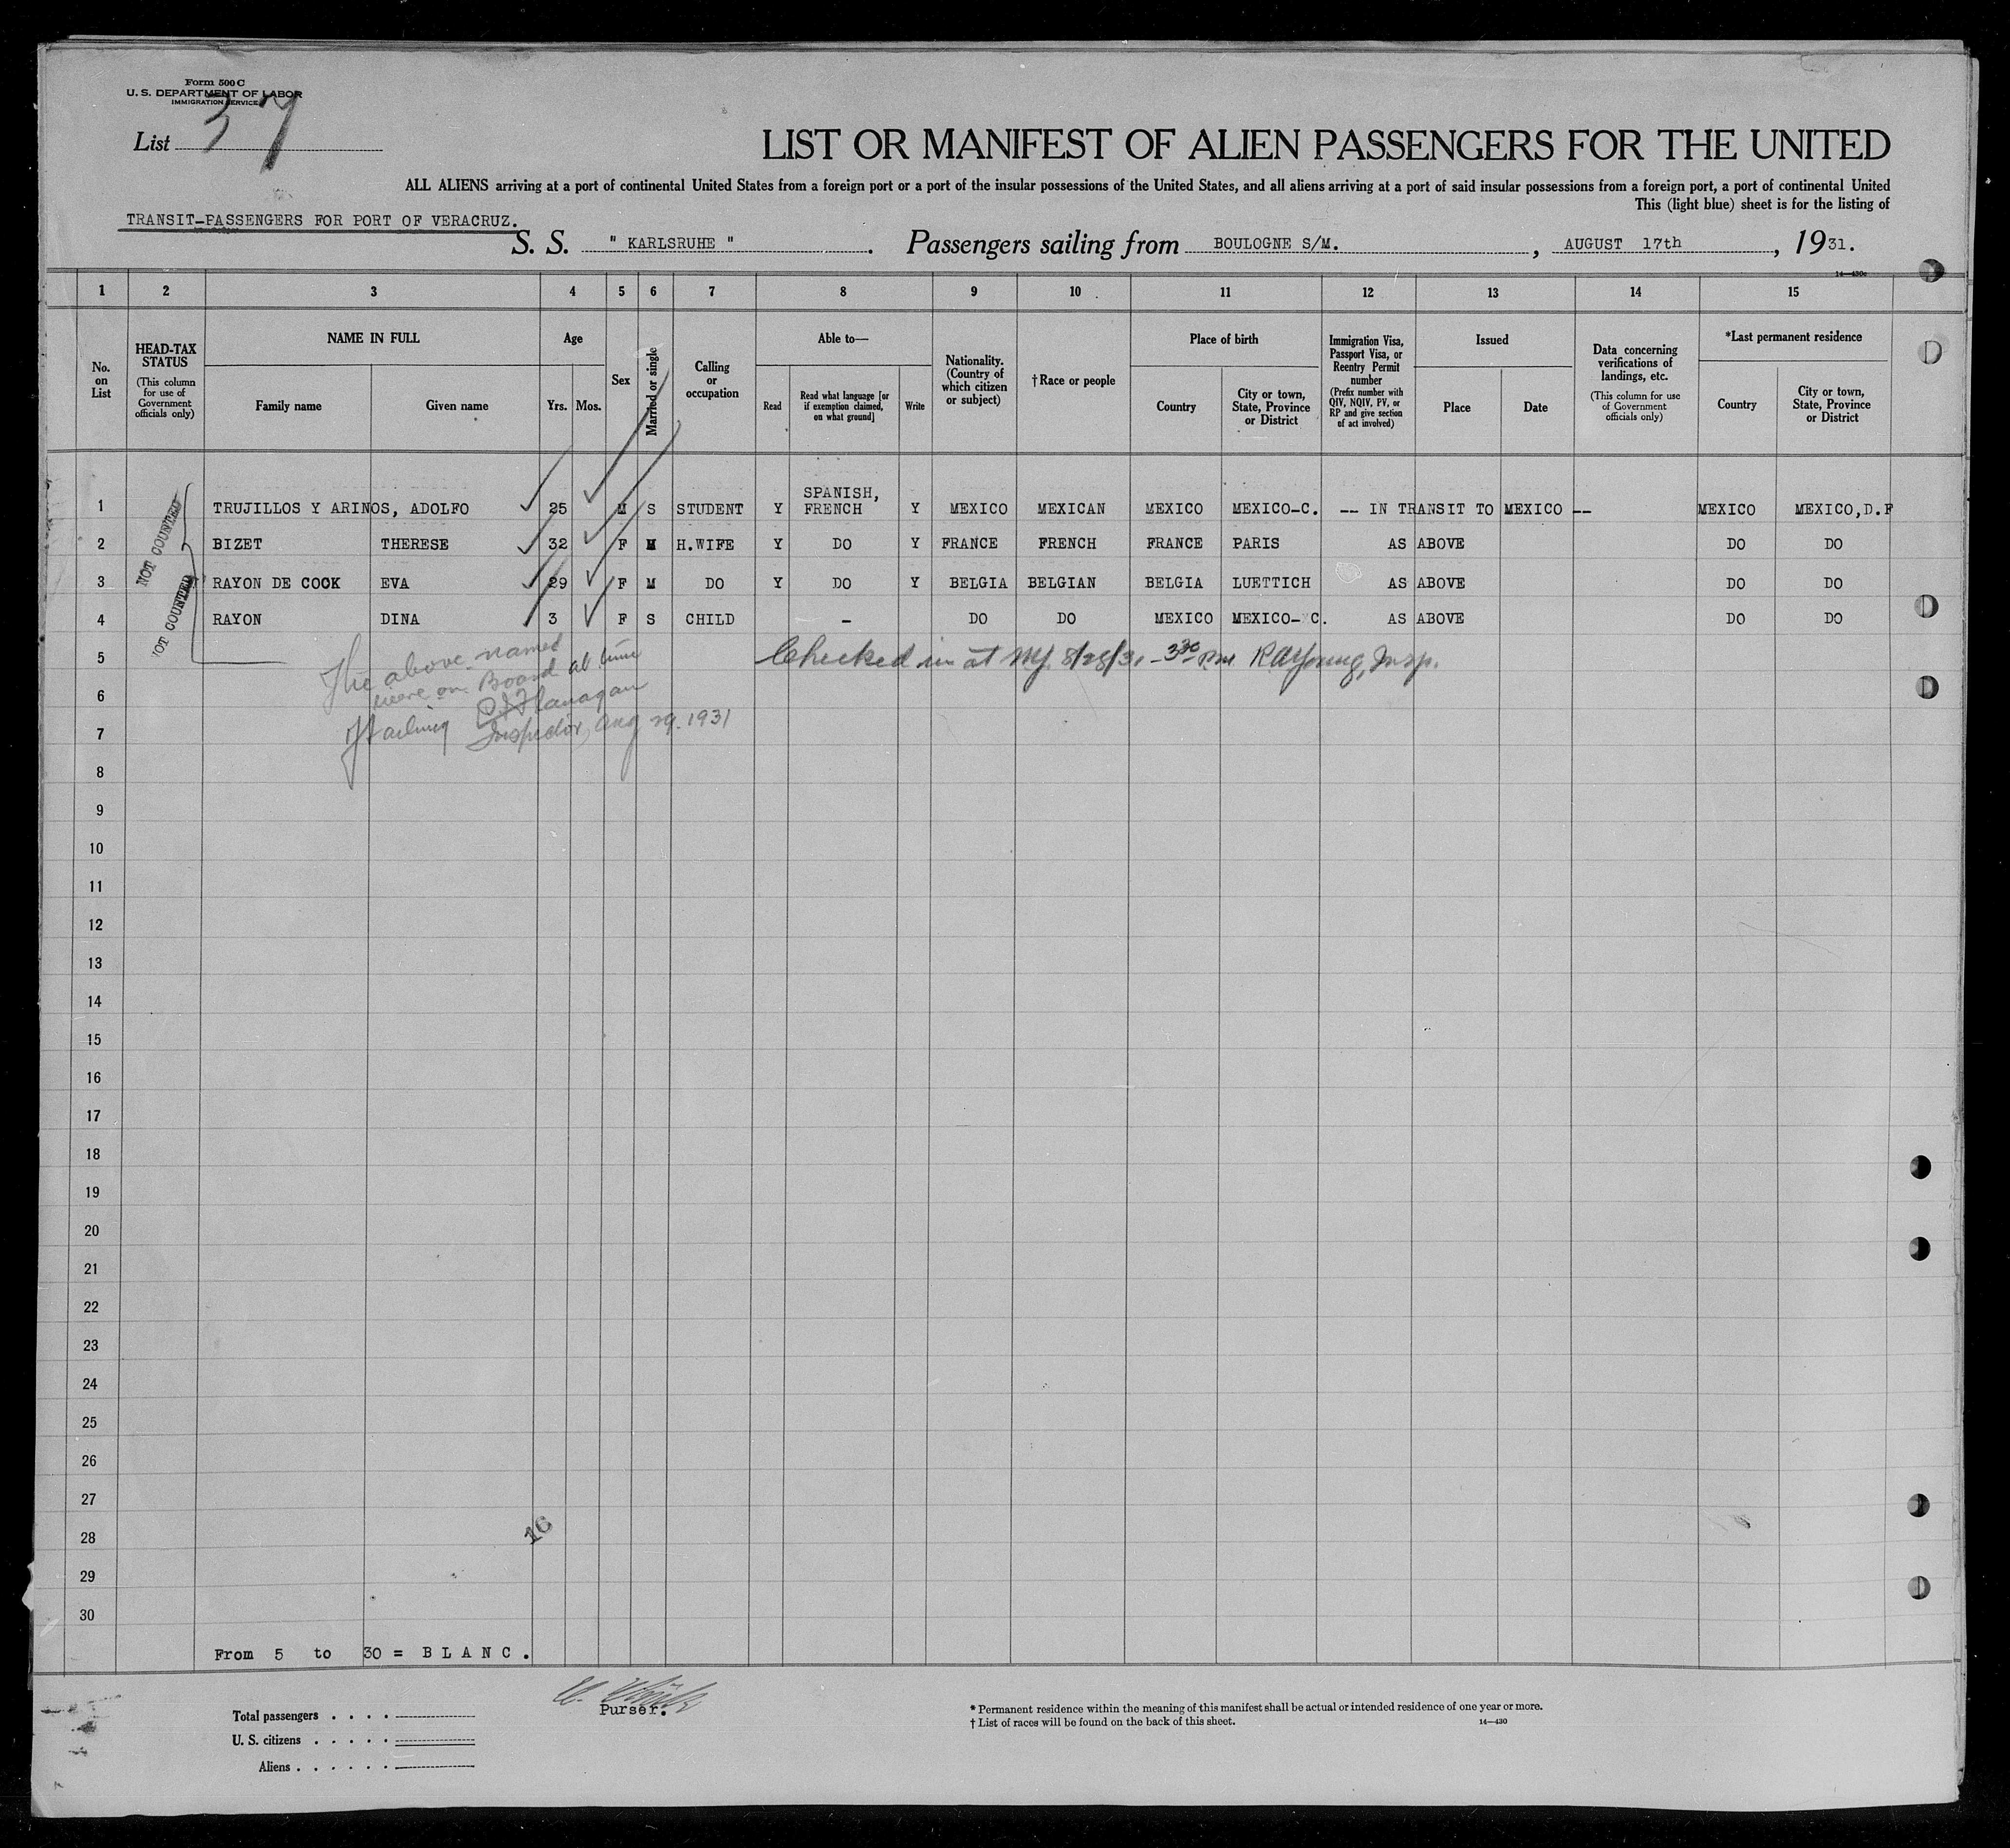 Form 500 C
U. S. DEPARTMENT OF LABOR
IMMIGRATION SERVICE
List 37
LIST OR MANIFEST OF ALIEN PASSENGERS FOR THE UNITED
ALL ALIENS arriving at a port of continental United States from a foreign port or a port of the insular possessions of the United States, and all aliens arriving at a port of said insular possessions from a foreign port, a port of continental United
This (light blue) sheet is for the listing of
TRANSIT-PASSENGERS FOR PORT OF VERACRUZ.
S. S. " KARLSRUHE ". Passengers sailing from BOULOGNE S/M., AUGUST 17th, 1931.
14—430c
1 2 3 4 5 6 7 8 9 10 11 12 13 14 15
No. on List
HEAD-TAX STATUS
(This column for use of Government officials only)
NAME IN FULL
Family name
Given name
Age
Yrs. Mos.
Sex
Married or single
Calling or occupation
Able to—
Read
Read what language [or if exemption claimed, on what ground]
Write
Nationality. (Country of which citizen or subject)
†Race or people
Place of birth
Country
City or town, State, Province or District
Immigration Visa, Passport Visa, or Reentry Permit number
(Prefix number with QIV, NQIV, PV, or RP and give section of act involved)
Issued
Place
Date
Data concerning verifications of landings, etc.
(This column for use of Government officials only)
*Last permanent residence
Country
City or town, State, Province or District
NOT COUNTED
NOT COUNTED
1 TRUJILLOS Y ARINOS, ADOLFO 25 M S STUDENT Y SPANISH, FRENCH Y MEXICO MEXICAN MEXICO MEXICO-C. -- IN TRANSIT TO MEXICO -- MEXICO MEXICO,D.F
2 BIZET THERESE 32 F M H.WIFE Y DO Y FRANCE FRENCH FRANCE PARIS AS ABOVE DO DO
3 RAYON DE COCK EVA 29 F M DO Y DO Y BELGIA BELGIAN BELGIA LUETTICH AS ABOVE DO DO
4 RAYON DINA 3 F S CHILD - DO DO MEXICO MEXICO- C. AS ABOVE DO DO
5 Checked in at NY. 8/28/31 - 3 30 PM RAYoung, Insp.
The above named
were on Board at time
6
of Sailing PJFlanagan
7 Inspector, Aug 29. 1931
8
9
10
11
12
13
14
15
16
17
18
19
20
21
22
23
24
25
26
27
28
16
29
30
From 5 to 30 = B L A N C .
Purser.
Total passengers . . . .
U. S. citizens . . . . .
Aliens . . . . . .
* Permanent residence within the meaning of this manifest shall be actual or intended residence of one year or more.
† List of races will be found on the back of this sheet.
14—430